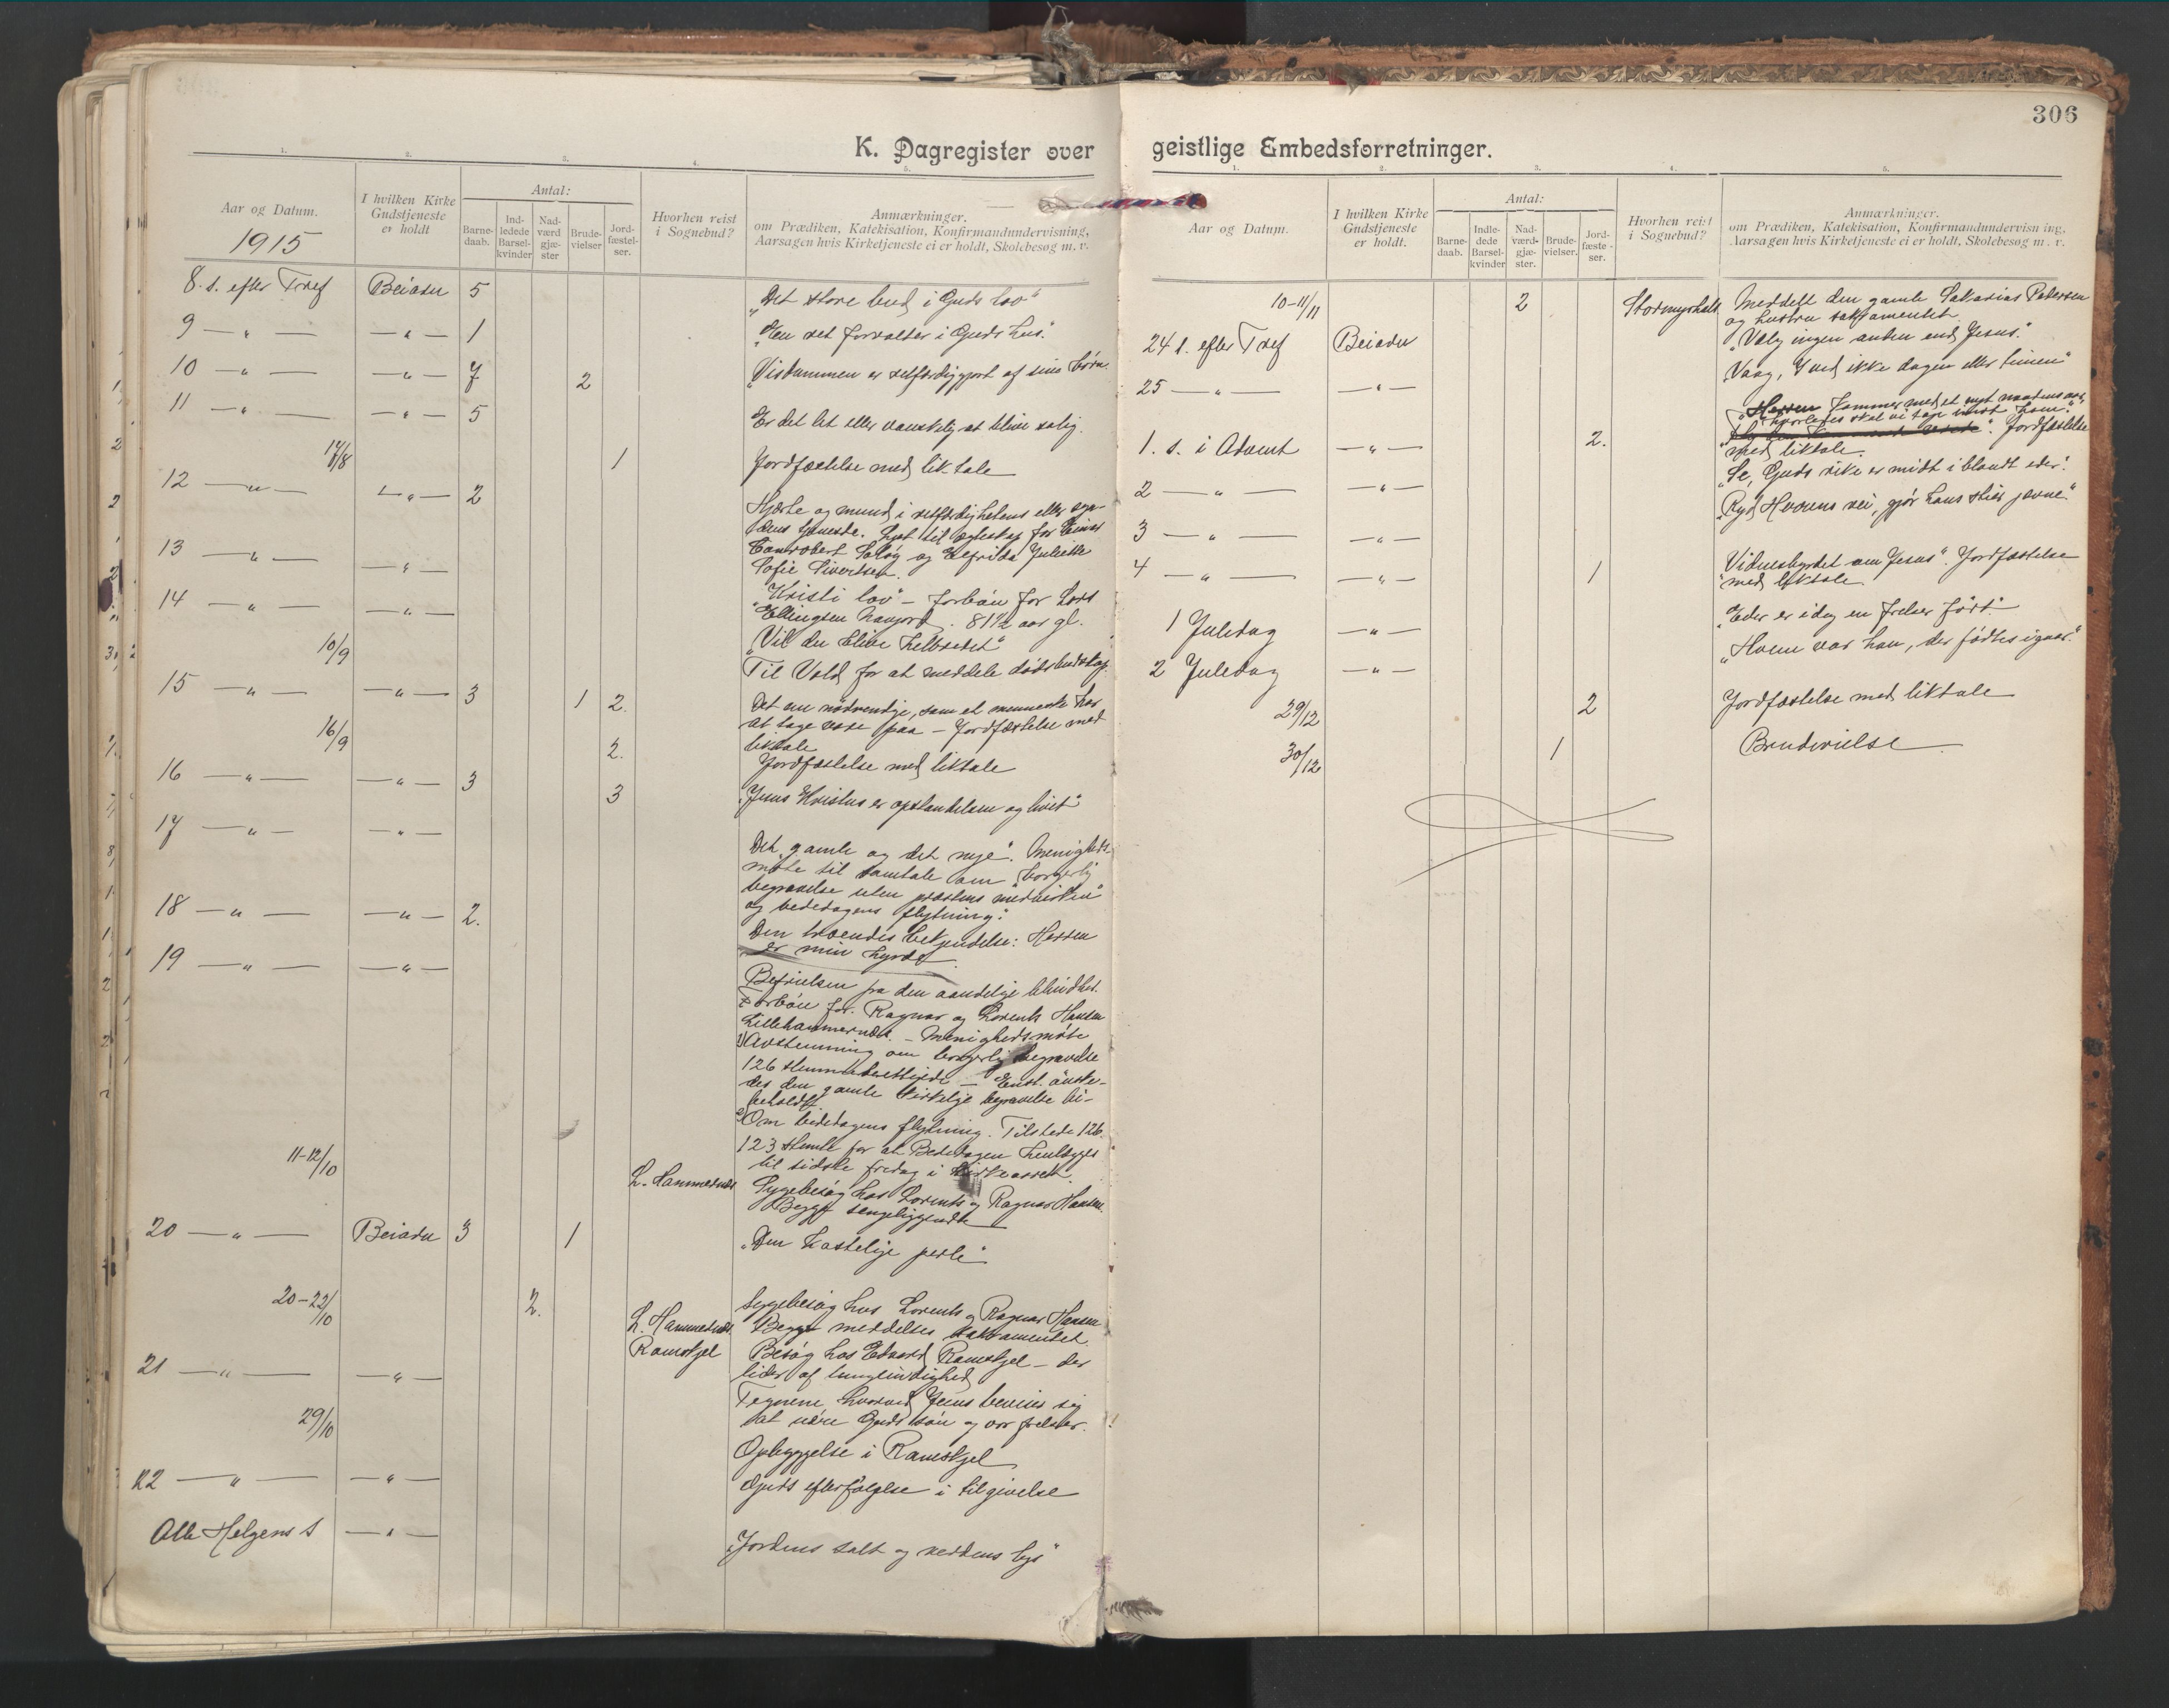 306
K. Dagregister over geistlige Embedsforretninger.
1. 2. 3. 4. 5.
Aar og Datum.
1915
I hvilken Kirke Gudstjeneste er holdt
Antal:
Barne-daab.
Ind-ledede Barsel-kvinder
Nad-værd gjæ-ster
Brude-vielser
Jord-fæstel-ser.
Hvorhen reist i Sognebud?
Anmærkninger.
om Prædiken, Katekisation, Konfirmandundervisning,
Aarsagen hvis Kirketjeneste ei er holdt, Skolebesøg m. v.
8. s. efter Tref Beiarn 5 „Det store bud i Guds lov"
9 — " — — " — 1 „En ret forvalter i Guds hus."
10 — " — — " — 7 2 „Visdommen er retfærdiggjort af sine børn.
11 — " — — " — 5 Er det let eller vanskelig at blive salig.
17/8 1 Jordfæstelse med liktale
12 — " — — " — 2 Hjerte og mund i retfærdighetens eller syn-
dens tjeneste. Lyst til egteskap for Einar
og Elfrida Juliette
Sofie Sivertsen.
13 — " — — " —
„Kristi lov" – forbøn for Lars
Ellingsen Navjord. 81½ aar gl.
14 — " — — " — „Vil du blive helbredet"
10/9 Til Vold for at meddele dødsbudskap.
15 — " — — " — 3 1 2. Det ene nødvendige, som et menneske har
at tage vare paa – Jordfæstelse med
liktale
16/9 2. Jordfæstelse med liktale
16 — " — — " — 3 3 „Jesus Kristus er opstandelsen og livet"
17 — " — — " —
„Det gamle og det nye". Menigheds-
møte til samtale om „borgerlig
begravelse uten prestens medvirken"
og bededagens flytning".
18 — " — — " — 2. Den troendes bekjendelse: Herren
er min hyrde.
19 — " — — " —
Befrielsen fra den aandelige blindhet.
Forbøn for Ragnar og Lorents Hansen
Lillehammernes. – Menighedsmøte
1) Avstemning om borgerlig begravelse
126 stemmeberettigede – Enst. ønske-
des den gamle kirkelige begravelse bi-
beholdt.
2) Om bededagens flytning. Tilstede 126.
123 stemte for at Bededagen henlægges
til sidste fredag i kirkeaaret.
11-12/10 L. Hammernes Sygebesøg hos Lorents og Ragnar Hansen.
Begge sengeliggende
20 — " — Beiarn 3 1 „Den kostelige perle"
20-22/10 2. L. Hammernes Sygebesøg hos Lorents og Ragnar Hansen
Begge meddeltes sakramentet.
Ramskjel Besøg hos Edvard Ramskjel – der
lider af tungsindighed
21 — " — — " — Tegnene hvorved Jesus bevises sig
at være Guds søn og vor frelser.
29/10 Opbyggelse i Ramskjel
22 — " — — " — Guds efterfølgelse i tilgivelse
Alle Helgens s — " — „Jordens salt og verdens lys"
1. 2. 3. 4. 5.
Aar og Datum.
I hvilken Kirke Gudstjeneste er holdt.
Antal:
Barne-daab.
Indle-dede Barsel-kvinder
Nad-værd-gjæ-ster.
Brude-vielser.
Jord-fæste-ser.
Hvorhen reist i Sognebud?
Anmærkninger.
om Prædiken, Katekisation, Konfirmandundervisning,
Aarsagen hvis Kirketjeneste ei er holdt, Skolebesøg m. v.
10-11/11 2 Meddelt den gamle Sakarias Petersen
og hustru sakramentet.
24 s. efter Tref Beiarn „Vælg ingen anden end Jesus".
25 — " — — " — „Vaag, I ved ikke dagen eller timen"
„Herren kommer med et nyt naadens aar,
hvorledes skal vi tage imot ham".
1. s. i Advent — " — 2. Jordfæstelse
med liktale.
2 — " — — " — „Se, Guds rike er midt i blandt eder".
3 — " — — " — „Ryd Herrens vei, gjør hans stier jevne."
4 — " — — " — 1 „Vidnesbyrdet om Jesus". Jordfæstelse
med liktale
1 Juledag — " — „Eder er idag en frelser født"
2 Juledag — " — „Hvem var han, der fødtes igaar."
29/12 2 Jordfæstelse med liktale
30/12 1 Brudevielse.